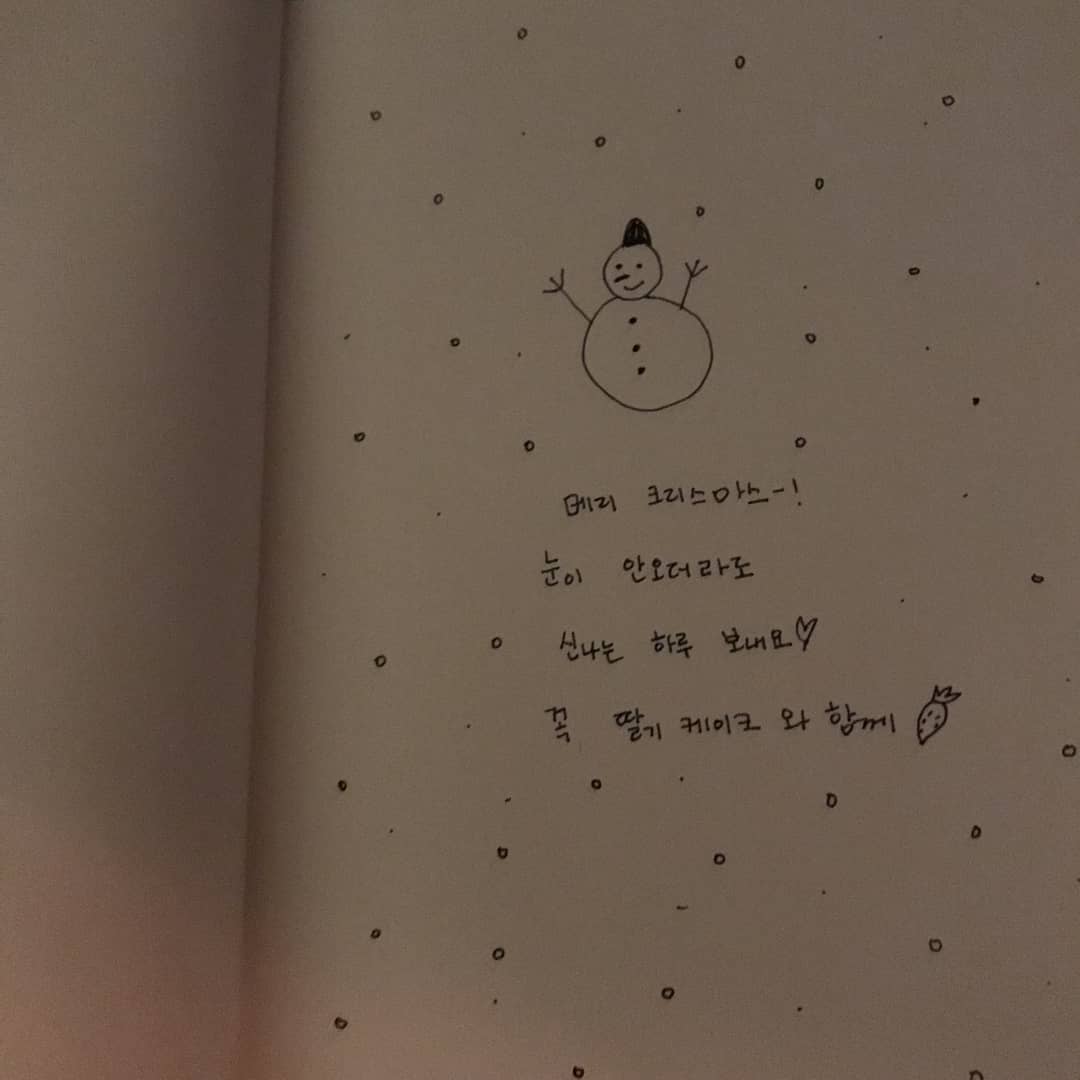 메리 크리스마스-!
눈이 안오더라도
신나는 하루 보내요♡
꼭 딸기 케이크 와 함께